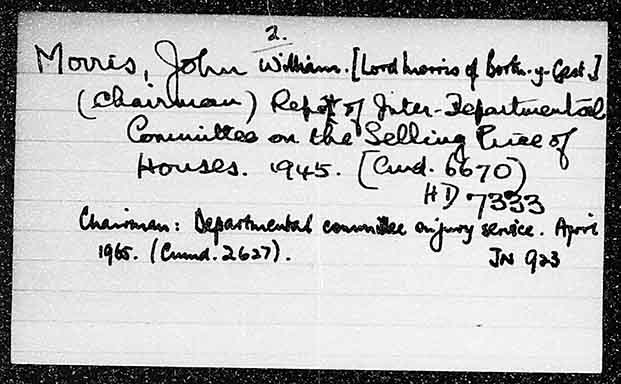 2.
Morris, John William. [Lord Morris of Borth-y-Gest]
(Chairman) Report of Inter-Departmental
Committee on the Selling Price of
Houses. 1945. (Cmd. 6670)
HD 7333
Chairman: Departmental committee on jury service. April
1965. (Cmnd. 2627).
JN 923